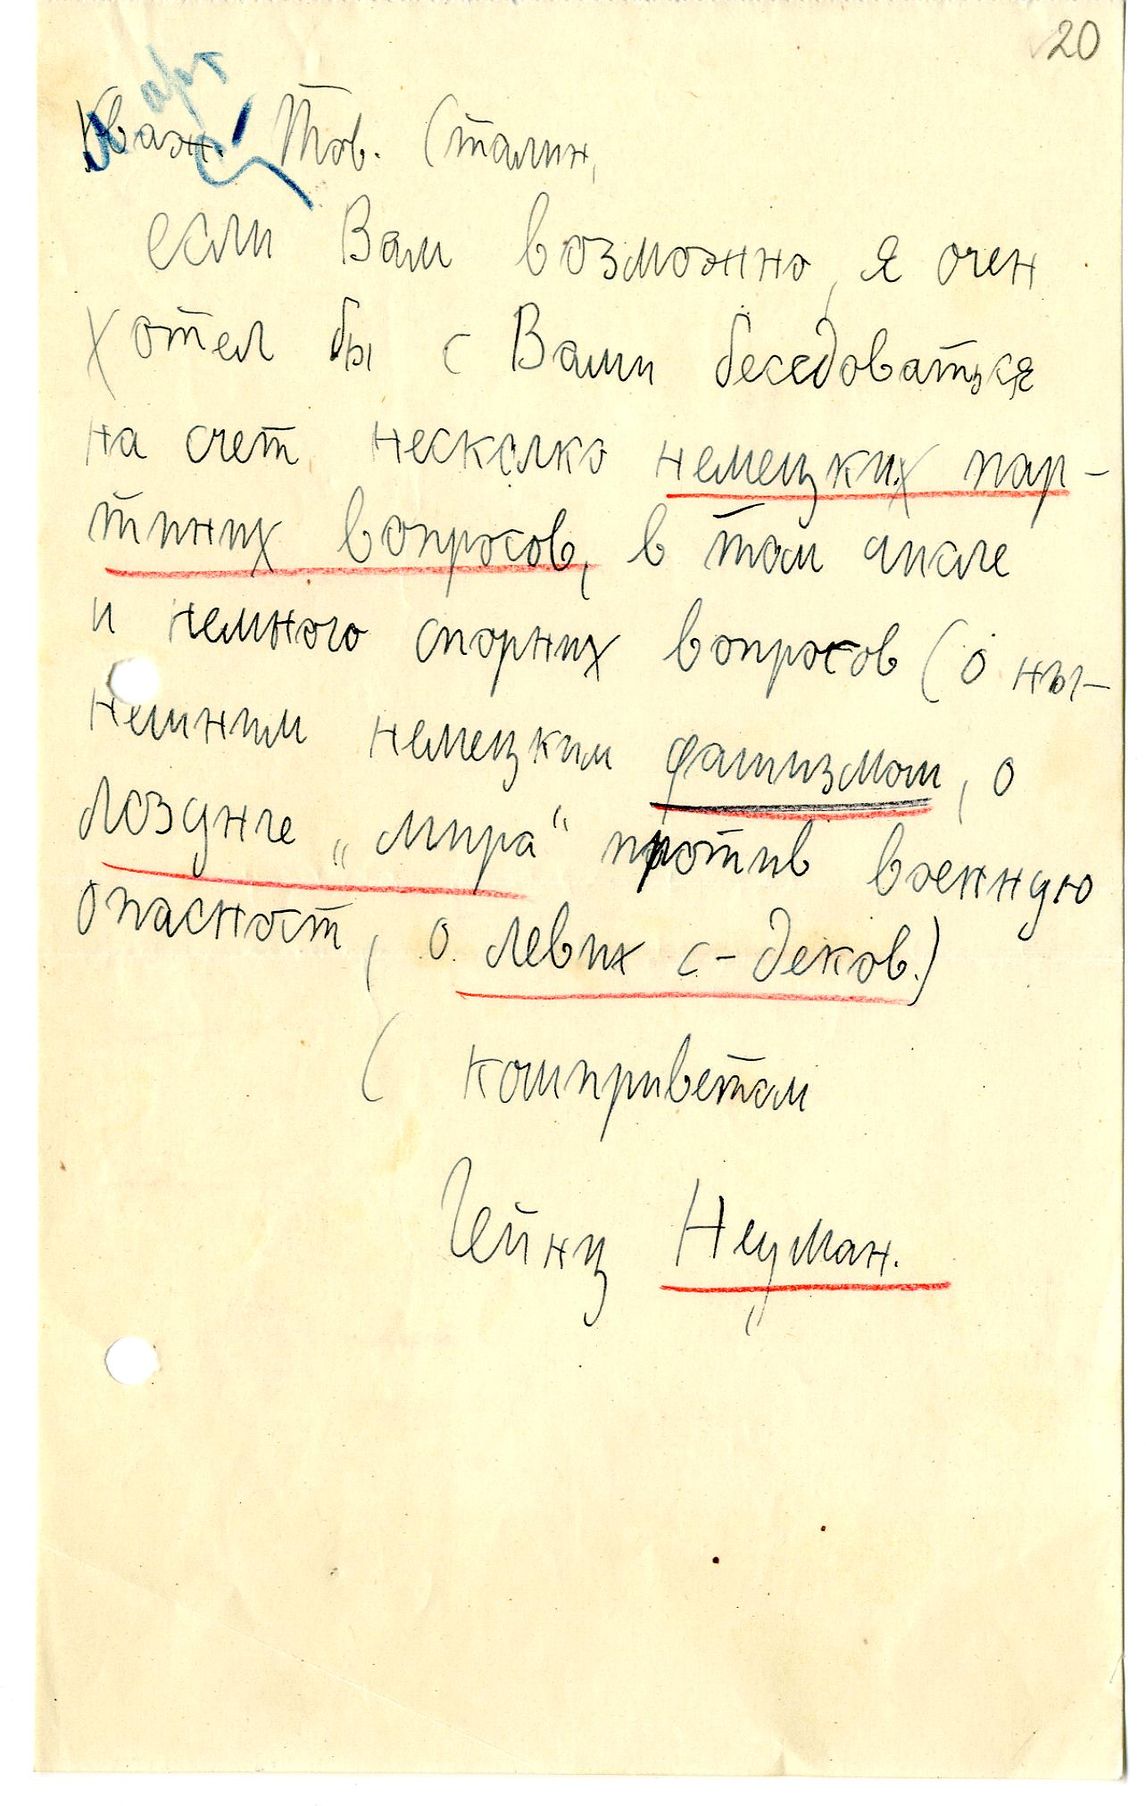 20
Уваж. Тов. Сталин,
если Вам возможно, я очен
хотел бы с Вами беседоваться
на счет несколко немецких пар-
тиних вопросов, в том числе
и немного спорних вопросов (о ны-
нешним немецким фашизмом, о
лозунге „мира“ против военную
опасност, о левих с-деков.)
С комприветом
Гейнц Неуман.